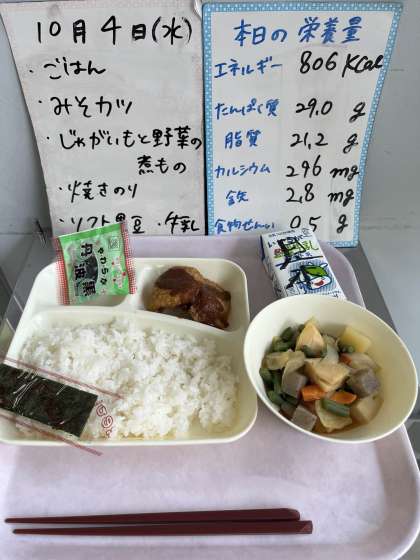 10月4日(水)
・ごはん
・みそカツ
・じゃがいもと野菜の
煮もの
・焼きのり
・ソフト黒豆・牛乳
本日の栄養量
エネルギー 806 Kcal
たんぱく質 29.0 g
脂質 21.2 g
カルシウム 296 mg
鉄 2.8 mg
食物せんい 0.5 g
やわらか
丹波黒